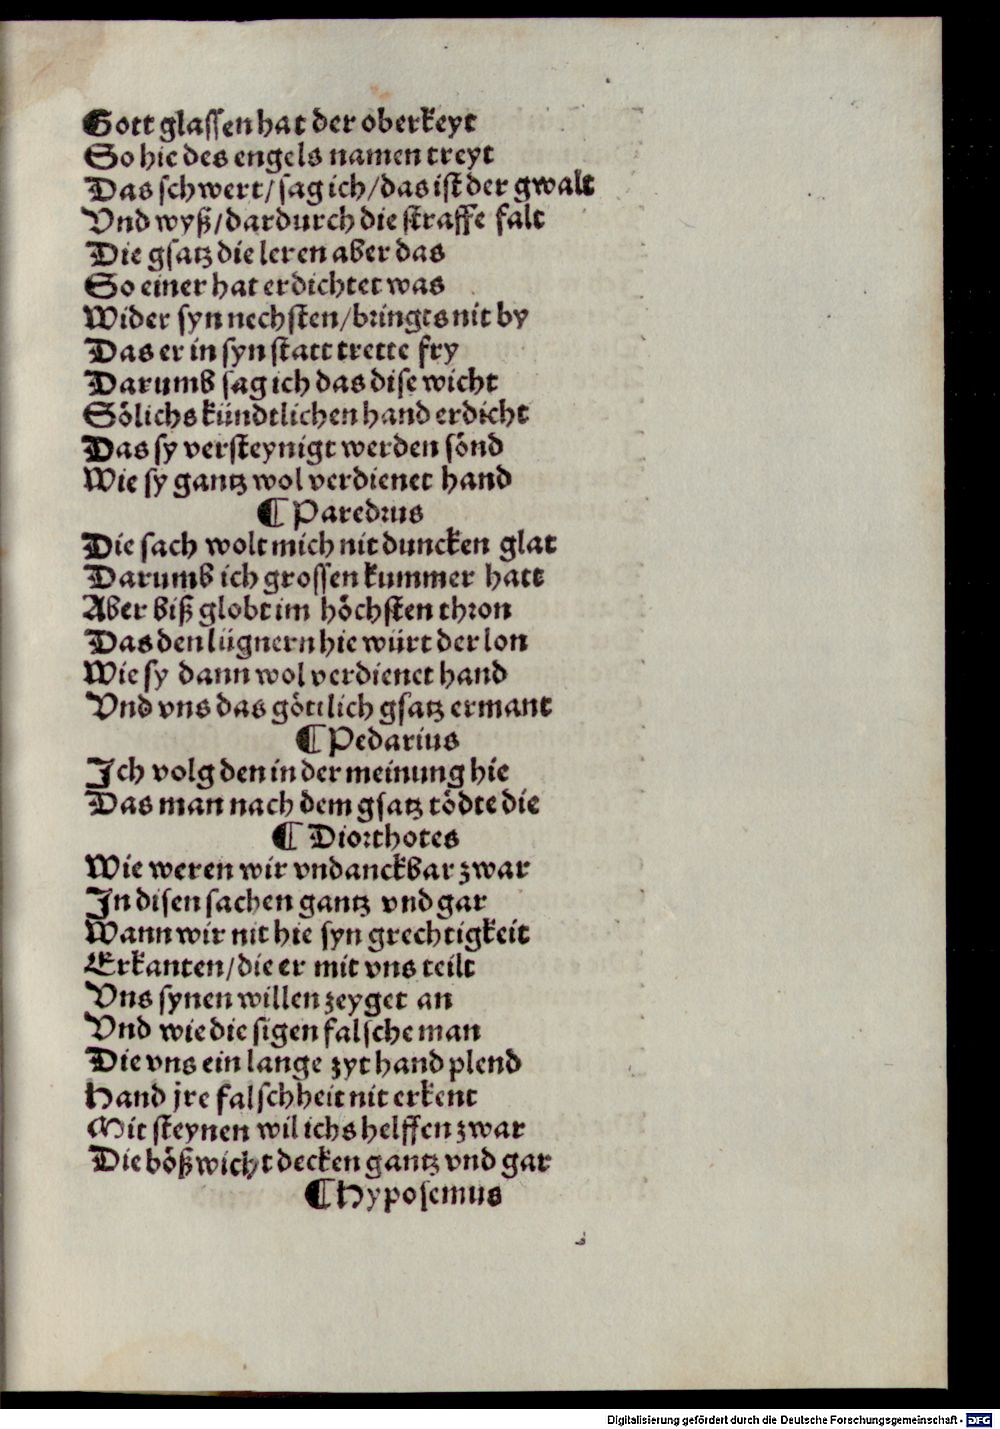 Gott glassen hat der oberkeyt
So hie des engels namen treyt
Das schwert/ sag ich/ das ist der gwalt
Vnd wyß/ dardurch die straffe falt
Die gsatz die leren aber das
So einer hat erdichtet was
Wider syn nechsten/ bringts nit by
Das er in syn statt trette fry
Darumb sag ich das dise wicht
Sölichs kündtlichen hand erdicht
Das sy versteynigt werden sönd
Wie sy gantz wol verdienet hand
¶ Paredrus
Die sach wolt mich nit duncken glat
Darumb ich grossen kummer hatt
Aber biß globt im höchsten thron
Das den lügnern hie würt der lon
Wie sy dann wol verdienet hand
Vnd vns das göttlich gsatz ermant
¶ Pedarius
Ich volg den in der meinung hie
Das man nach dem gsatz tödte die
¶ Diorthotes
Wie weren wir vndanckbar zwar
In disen sachen gantz vnd gar
Wann wir nit hie syn grechtigkeit
Erkanten/ die er mit vns teilt
Vns synen willen zeyget an
Vnd wie die sigen falsche man
Die vns ein lange zyt hand plend
Hand jre falschheit nit erkent
Mit steynen wil ichs helffen zwar
Die bößwicht decken gantz vnd gar
¶ Hyposemus
Digitalisierung gefördert durch die Deutsche Forschungsgemeinschaft - DFG